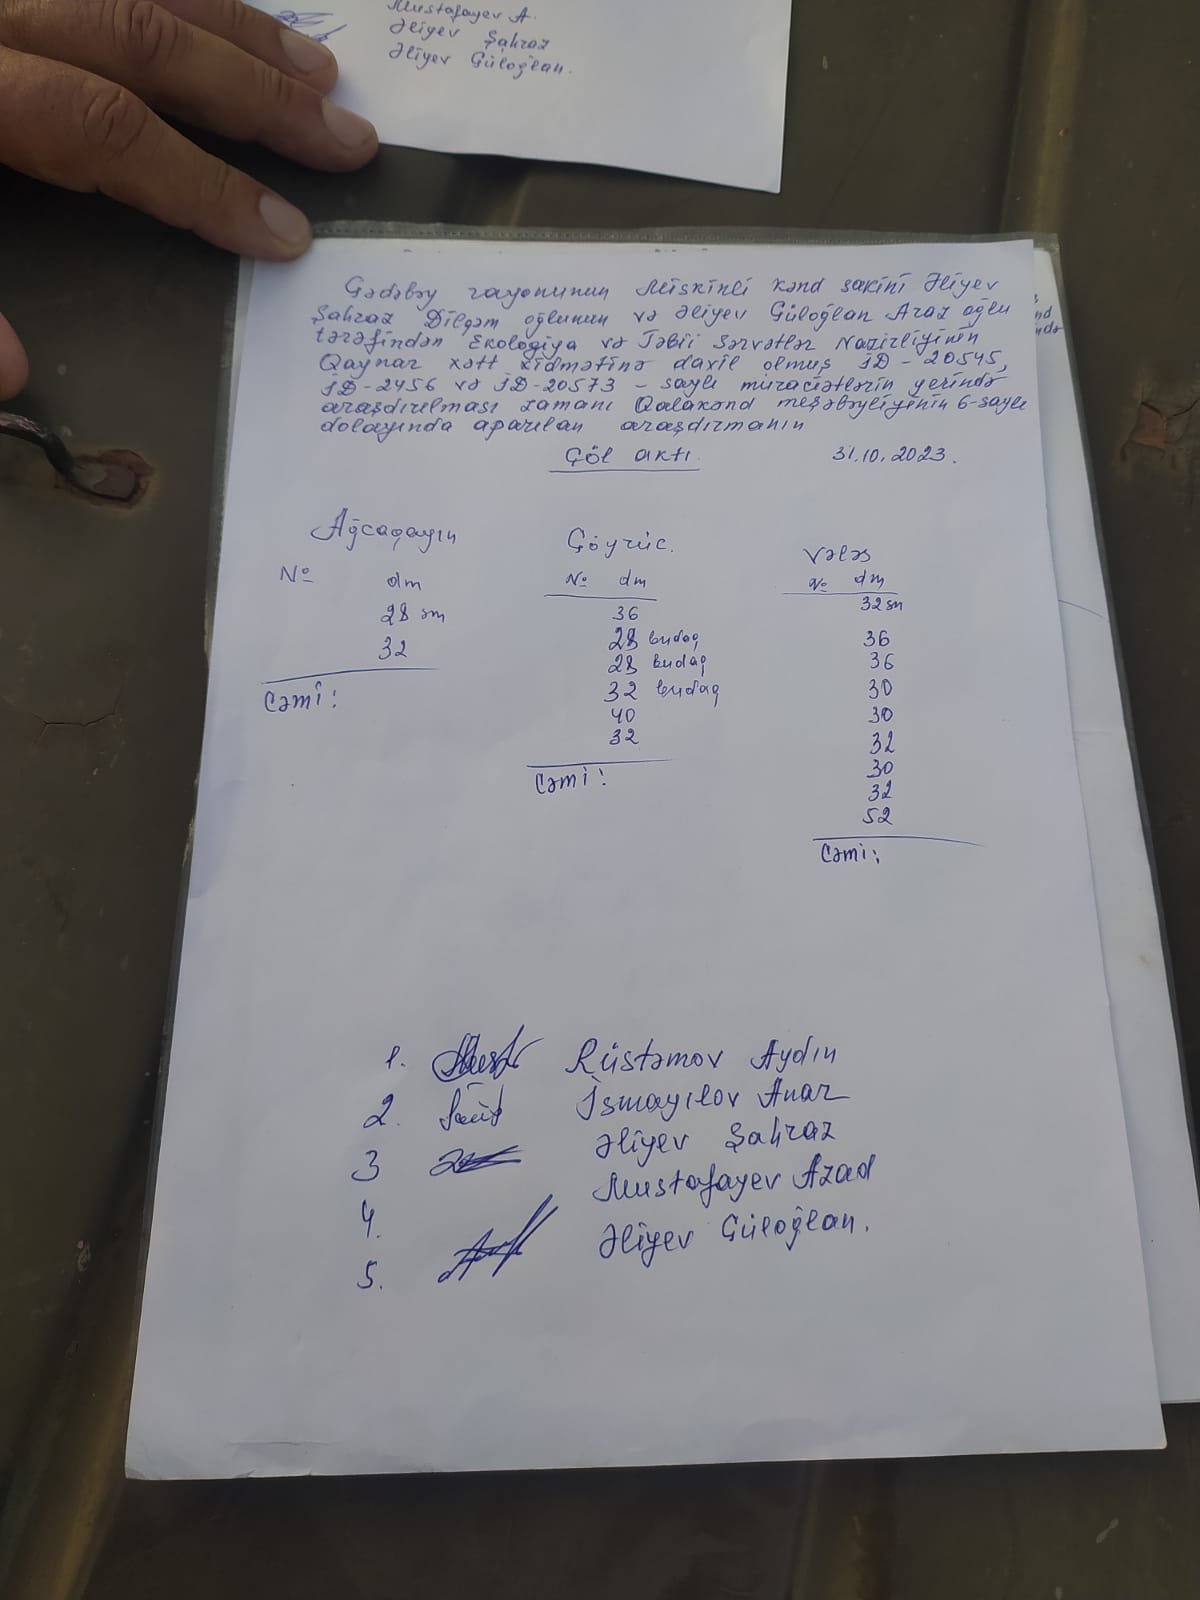 Mustafayev A.
Əliyev Şahraz
Əliyev Güloğlan.
Gədəbəy rayonunun Miskinli kənd sakini Əliyev
Şahraz Dilqəm oğlunun və Əliyev Güloğlan Araz oğlu
tərəfindən Ekologiya və Təbii Sərvətlər Nazirliyinin
Qaynar xətt xidmətinə daxil olmuş İD-20545,
İD-2456 və İD-20573-saylı müraciətlərin yerində
araşdırılması zamanı Qalakənd meşəbəyliyinin 6-saylı
dolayında aparılan araşdırmanın
Çöl aktı. 31.10.2023.
Ağcaqayın Göyrüc. Vələs
№ dm № dm № dm
28 sm 36 32 sm
32 28 budaq 36
Cəmi: 28 budaq 36
32 budaq 30
40 30
32 32
Cəmi: 30
32
52
Cəmi:
1. Rüstəmov Aydın
2. İsmayılov Anar
3 Əliyev Şahraz
4. Mustafayev Azad
5. Əliyev Güloğlan.